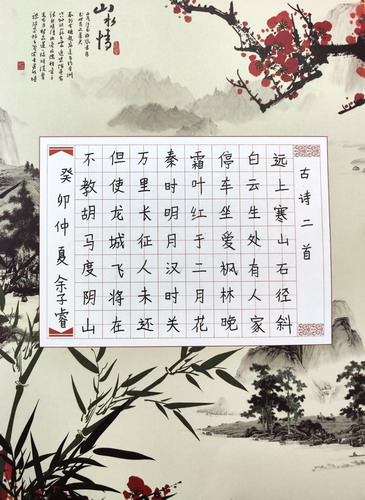 古诗二首
远上寒山石径斜
白云生处有人家
停车坐爱枫林晚
霜叶红于二月花
秦时明月汉时关
万里长征人未还
但使龙城飞将在
不教胡马度阴山
癸卯仲夏 余子睿
山水情